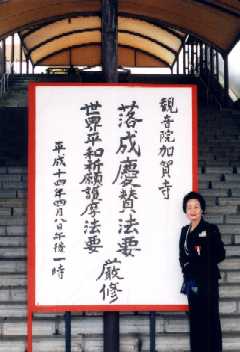 観音院加賀寺
落成慶賛法要
世界平和祈願護摩法要
厳修
平成十四年四月八日午後一時